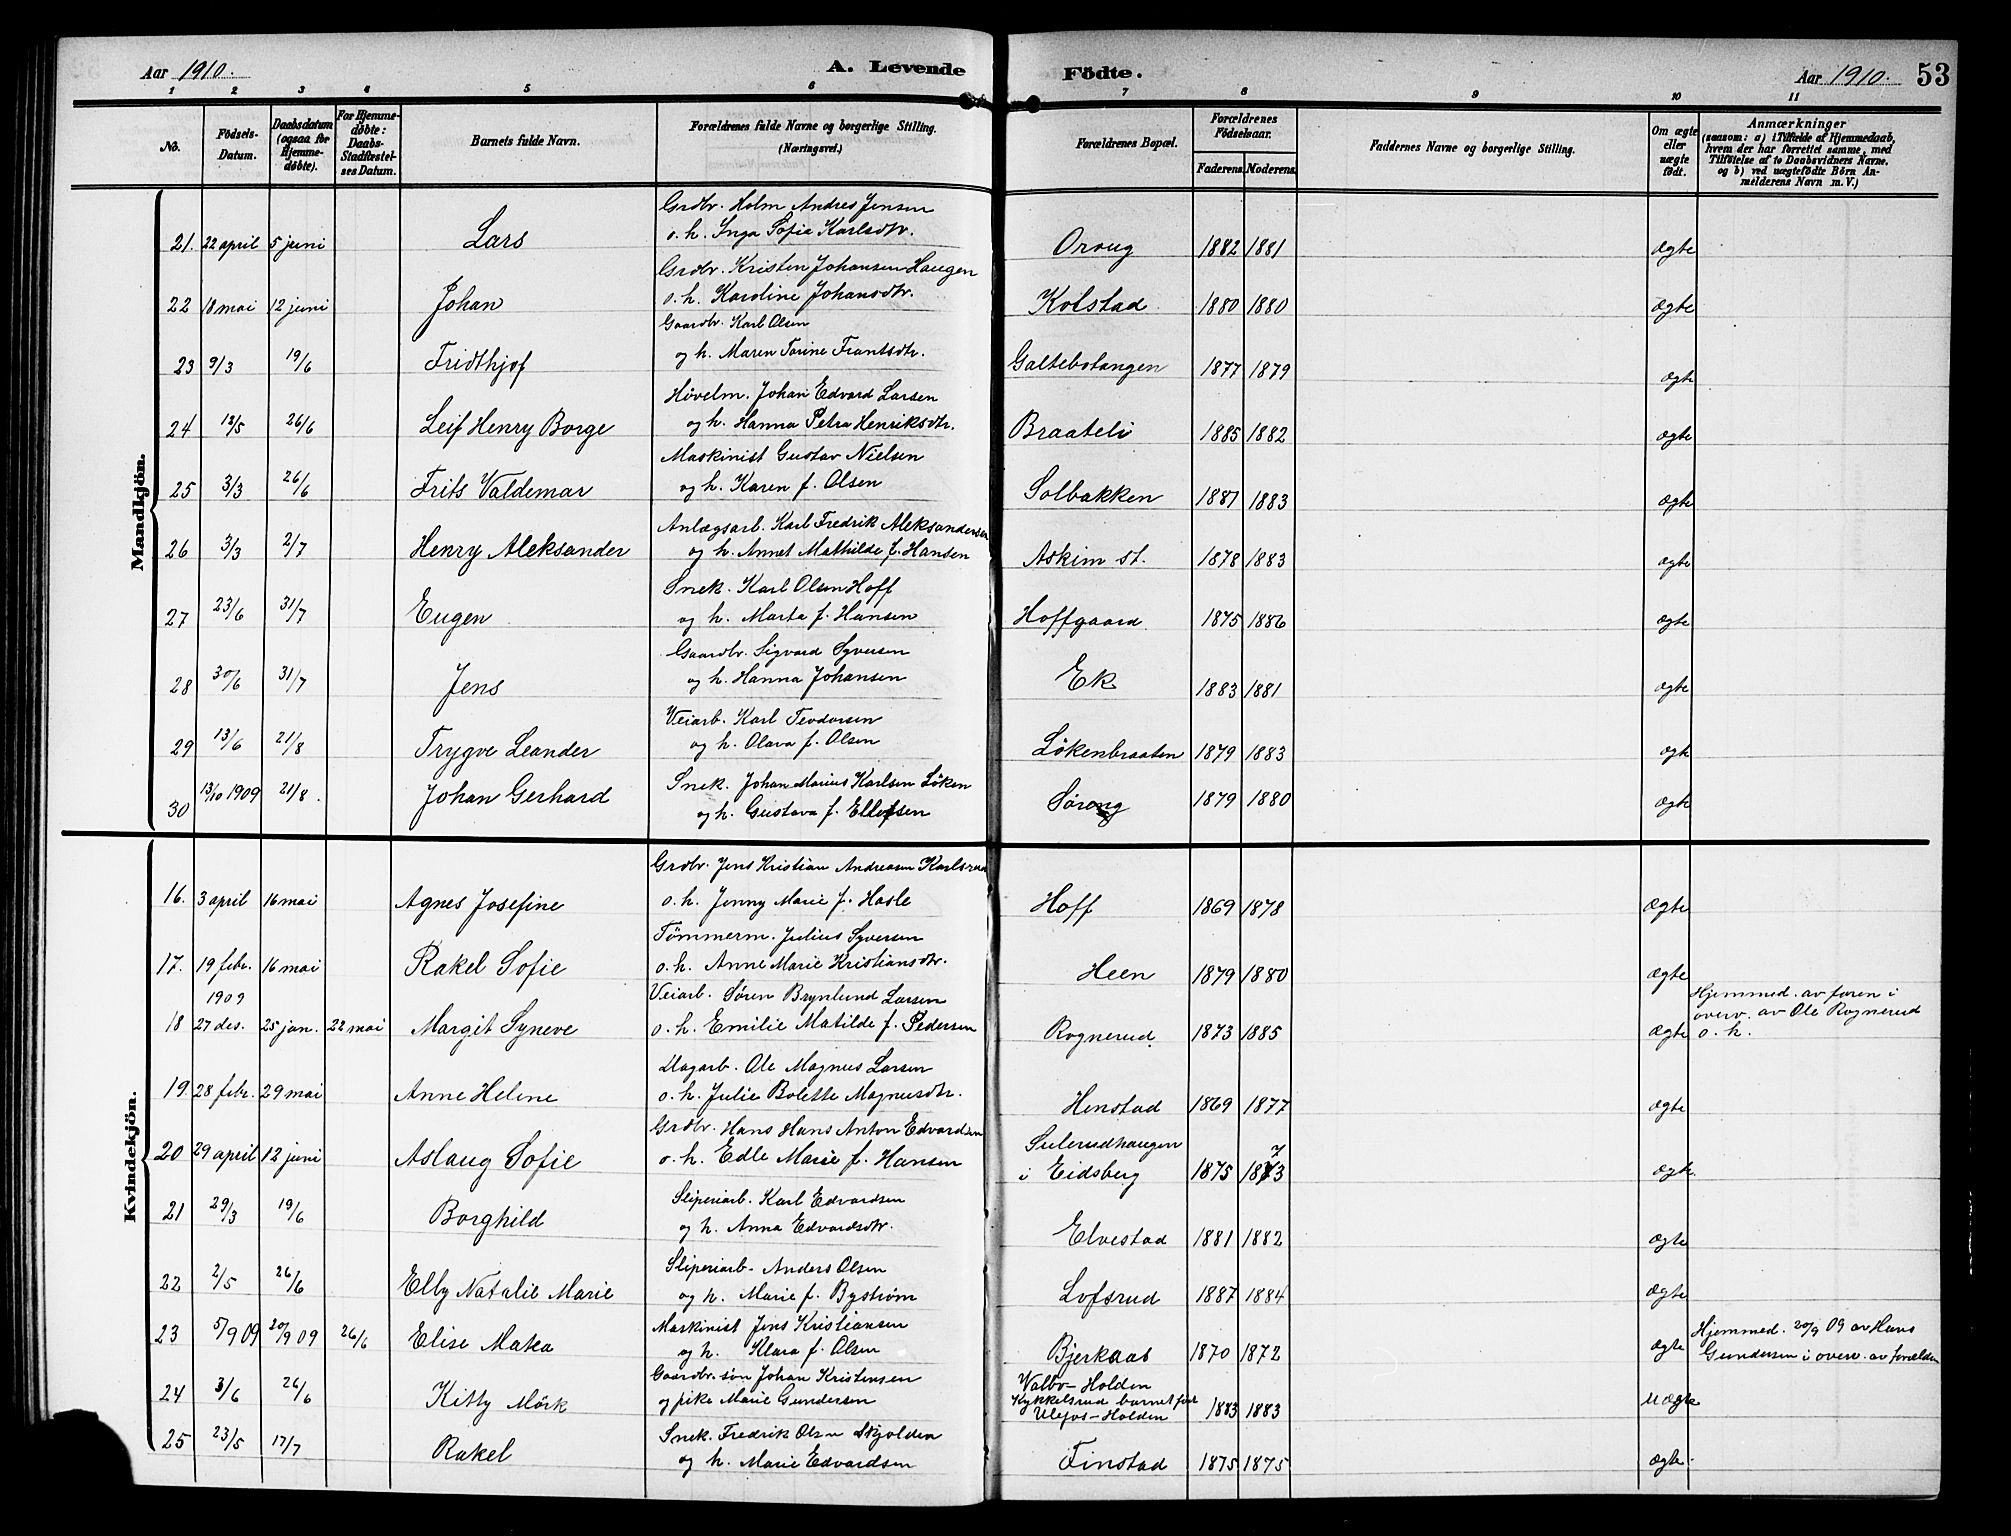 Aar 1910.
A. Levende
Födte.
Aar 1910.
53
1 2 3 4 5 6 7 8 9 10 11
No.
Födsels-Datum.
Daabsdatum (ogsaa for Hjemmedøbte).
For Hjemmedøbte: Daabs-Stadfæstelses Datum.
Barnets fulde Navn.
Forældrenes fulde Navne og borgerlige Stilling. (Næringsvei.)
Forældrenes Bopæl.
Forældrenes Födselsaar.
Faderens Moderens
Faddernes Navne og borgerlige Stilling.
Om ægte eller uægte födt.
Anmærkninger
(saasom: a) i Tilfælde af Hjemmedaab, hvem der har forrettet samme, med Tilföielse af to Daabsvidners Navne, og b) ved uægtefödte Börn Anmelderens Navn m. V.)
Mandkjön.
Grdbr. Holm Andres Jensen
21. 22 april 5 juni Lars o. h. Inga Sofie Karlsdtr. Oroug 1882 1881 ægte
Grdbr. Kristen Johansen Haugen
22 18 mai 12 juni Johan o. h. Karoline Johansdtr. Kolstad 1880 1880 ægte
Gaardbr. Karl Olsen
23 9/3 19/6 Fridthjof og h. Maren Torine Frantsdtr. Galtebotangen 1877 1879 ægte
Høvelm. Johan Edvard Larsen
24 12/5 26/6 Leif Henry Borge og h. Hanna Petra Henriksdtr. Braateli 1885 1882 ægte
Maskinist Gustav Nielsen
25 3/3 26/6 Frits Valdemar og h. Karen f. Olsen Solbakken 1881 1883 ægte
Anlægsarb. Karl Fredrik Aleksandersen
26 3/3 2/7 Henry Aleksander og h. Annet Mathilde f. Hansen Askim st. 1878 1883 ægte
Snek. Karl Olsen Hoff
27 23/6 31/7 Eugen og h. Marta f. Hansen Hoffgaard 1875 1886 ægte
Gaardbr. Sigvard Syversen
28 30/6 31/7 Jens og h. Hanna Johansen Ek 1883 1881 ægte
Veiarb. Karl Teodorsen
29 13/6 21/8 Trygve Leander og h. Olava f. Olsen Løkenbraaten 1879 1883 ægte
Snek. Johan Marius Karlsen Løken
30 13/10 1909 21/8. Johan Gerhard og h. Gustava f. Ellefsen Søroug 1879 1880 ægte
Kvindekjön.
Grdbr. Jens Kristian Andreasen Karlsrud
16. 3 april 16 mai Agnes Josefine o. h. Jenny Marie f. Hasle Hoff 1869 1878 ægte
Tömmerm. Julius Syversen
17. 19 febr. 16 mai Rakel Sofie o. h. Anne Marie Kristiansdtr. Heen 1879 1880 ægte
1909 Veiarb. Søren Brynlund Larsen Hjemmed. av faren i
18 27 des. 25 jan. 22 mai Margit Syneve o. h. Emilie Matilde f. Pedersen Rognerud. 1873 1885 ægte overv. av Ole Rognerud o. h.
Dagarb. Ole Magnus Larsen
19. 28 febr. 29 mai Anne Helene o. h. Julie Bolette Magnusdtr. Henstad 1869 1877 ægte
Grdbr. Hans Hans Anton Edvardsen Sulerudhaugen
20 29 april 12 juni Aslaug Sofie o. h. Edle Marie f. Hansen i Eidsberg 1875 1873 7 ægte
Sliperiarb. Karl Edvardsen
21 29/3 19/6 Borghild og h. Anna Edvardsdtr. Elvestad 1881 1882 ægte
Sliperiarb. Anders Olsen
22 2/5 26/6 Elby Natalie Marie og h. Marie f. Bystrøm Lofsrud 1887 1884 ægte
Maskinist Jens Kristiansen Hjemmed. 20/9 09 av Hans
23 5/9 09 20/9 09 26/6 Elise Matea og h. Klara f. Olsen Bjerkaas 1870 1872 ægte Gundersen i overv. av foreldrn
Gaardbr. søn Johan Kristensen Valbo-Holden
24 3/6 26/6 Kitty Mörk og pike Marie Gundersen Kykkelsrud barnet født Ulefos-Holden 1883 1883 uægte
Snek. Fredrik Olsen Skjolden
25 23/5 17/7 Rakel og h. Marie Edvardsen Finstad 1875 1875 ægte.